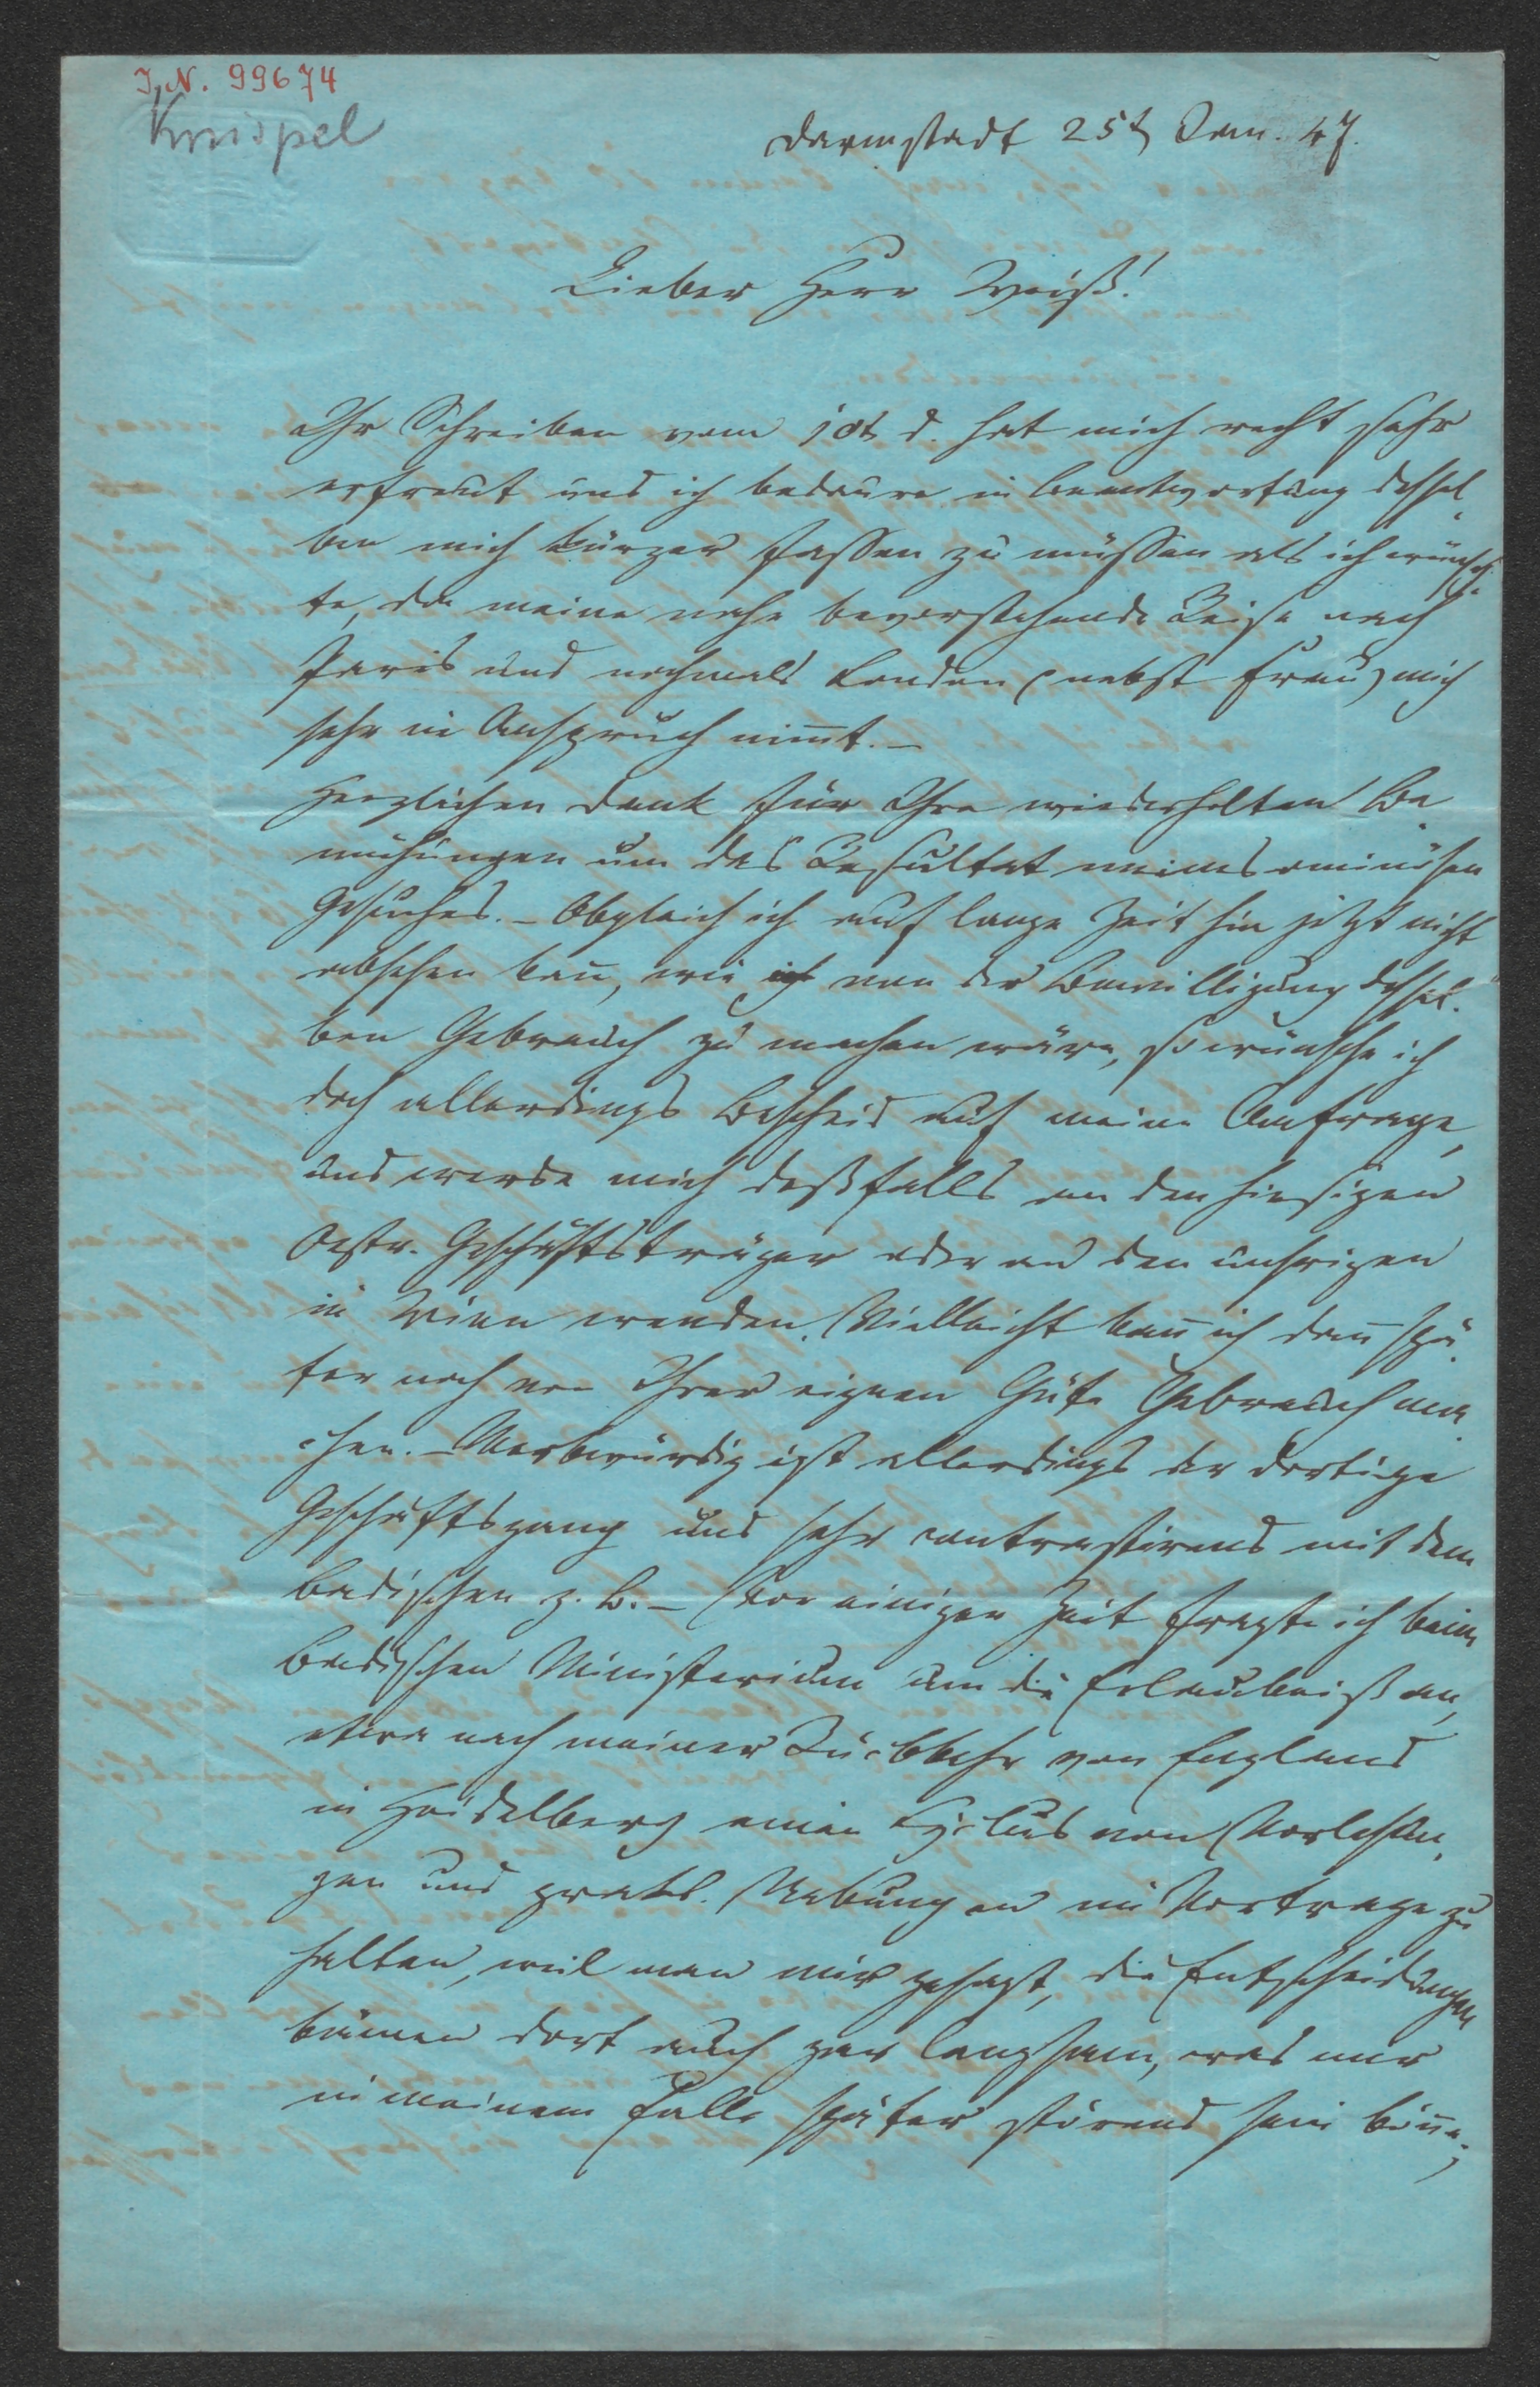 I.N. 99674
Knispel
Darmstadt 25t Jan. 47.
Lieber Herr Weiß!
Ihr Schreiben vom 10t d. hat mich recht sehr
erfreut und ich bedaure in Beantwortung dessel„
ben mich kürzer fassen zu müssen als ich wünsch„
te, da meine nahe bevorstehende Reise nach
Paris und nochmals London (nebst Frau) mich
sehr in Anspruch nim̅t. –
Herzlichen Dank für Ihre wiederholten Be„
mühungen um das Resultat meines ominösen
Gesuches. – Obgleich ich auf lange Zeit hin jetzt nicht
absehen kan̅, wie von der Bewilligung dessel„
ben Gebrauch zu machen wäre, so wünsche ich
doch allerdings Bescheid auf meine Anfrage,
und werde mich deßfalls an den hiesigen
Oestr. Geschäftsträger oder an den unsrigen
in Wien wenden. Vielleicht kan̅ ich dan̅ spä„
ter noch von Ihrer eignen Güte Gebrauch ma„
chen. – Merkwürdig ist allerdings der dortige
Geschäftsgang und sehr contrastirend mit dem
Badischen z. B. – Vor einiger Zeit fragte ich beim
Badischen Ministerium um die Erlaubniß an,
etwa nach meiner Rückkehr von England
in Heidelberg einen Cyclus von Vorlesun„
gen und prakt. Uebungen im Vortrage zu
halten, weil man mir gesagt, die Entscheidungen
kämen dort auch gar langsam, was mir
in meinem Falle später störend sein kön̅e;